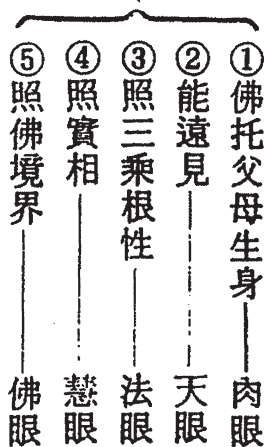 ①佛托父母生身——肉眼
②能遠見——天眼
③照三乘根性——法眼
④照實相——慧眼
⑤照佛境界——佛眼